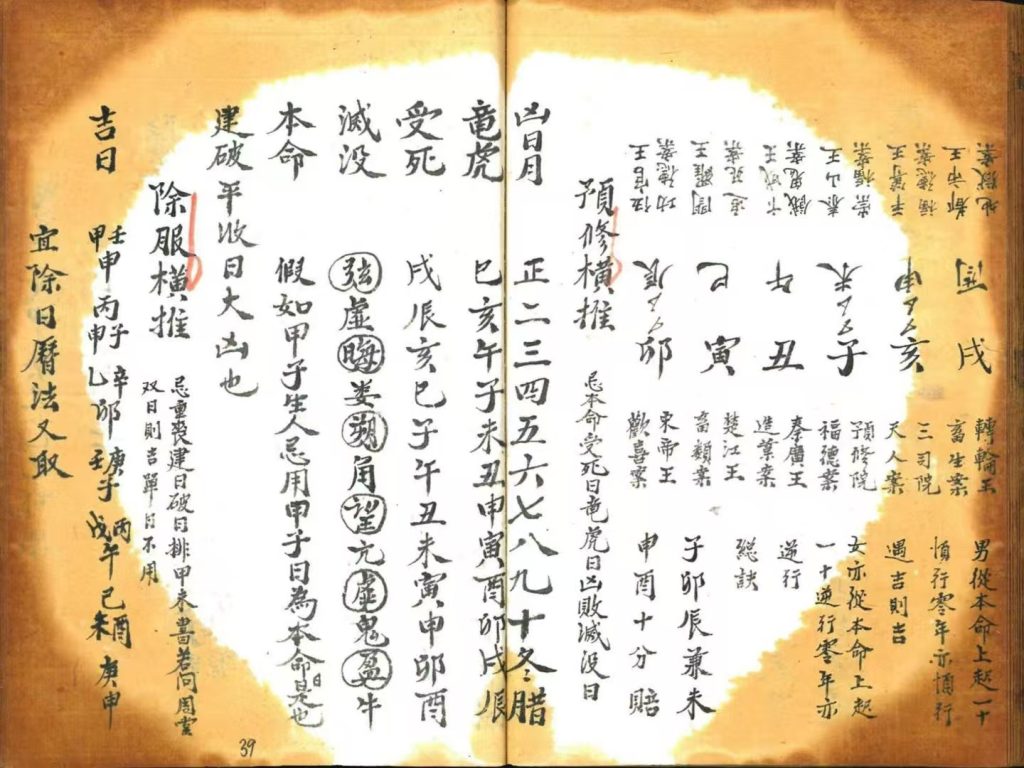 地獄案
都市王
福德案
平等王
崇福案
泰山王
餓鬼案
卞城王
速死案
閻羅王
功德案
伍官王
酉
申
未
午
巳
辰
戌
亥
子
丑
寅
卯
轉輪王
畜生案
三司院
天人案
預修院
福德案
秦廣王
造業案
楚江王
畜願案
宋帝王
歡喜案
男從本命上起一十
順行零年亦順行
遇吉則吉
女亦從本命上起
一十逆行零年亦
逆行
總訣
子卯辰兼未
申酉十分賠
預修橫推 忌本命受死日竜虎日凶敗滅没日
凶日月 正二三四五六七八九十冬腊
竜虎 巳亥午子未丑申寅酉卯戌辰
受死 戌辰亥巳子午丑未寅申卯酉
滅没 弦虚晦娄朔角望亢虚鬼盈牛
本命 假如甲子生人忌用甲子日為本命日是也
建破平收日大凶也
除服橫推 忌重喪建日破日排甲未書若问周堂
双日則吉單日不用
吉日 壬申 甲申 丙子 乙卯 辛卯 壬子 庚子 戊午 丙午 己未 己酉 庚申
宜除日曆法又取
39